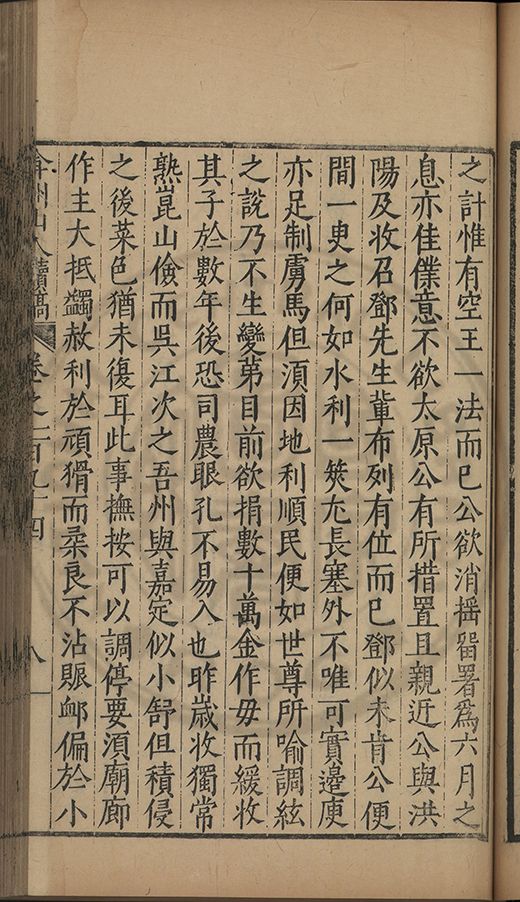 之計惟有空王一法而已公欲消揺畱署爲六月之
息亦佳僕意不欲太原公有所措置且親近公與洪
陽及收召鄧先生軰布列有位而已鄧似未肯公便
間一叟之何如水利一筴尢長塞外不唯可實邉庾
亦足制虜馬但湏因地利順民便如世尊所喻調絃
之說乃不生變苐目前欲捐數十萬金作毋而緩收
其子於數年後恐司農眼孔不易入也昨歳收獨常
熟崑山儉而吳江次之吾州與嘉定似小舒但積侵
之後菜色猶未復耳此事撫按可以調停要湏廟廊
作主大抵蠲赦利於頑猾而柔良不沾賑䘏偏於小
弇州山人續稿 卷之一百九十四 八